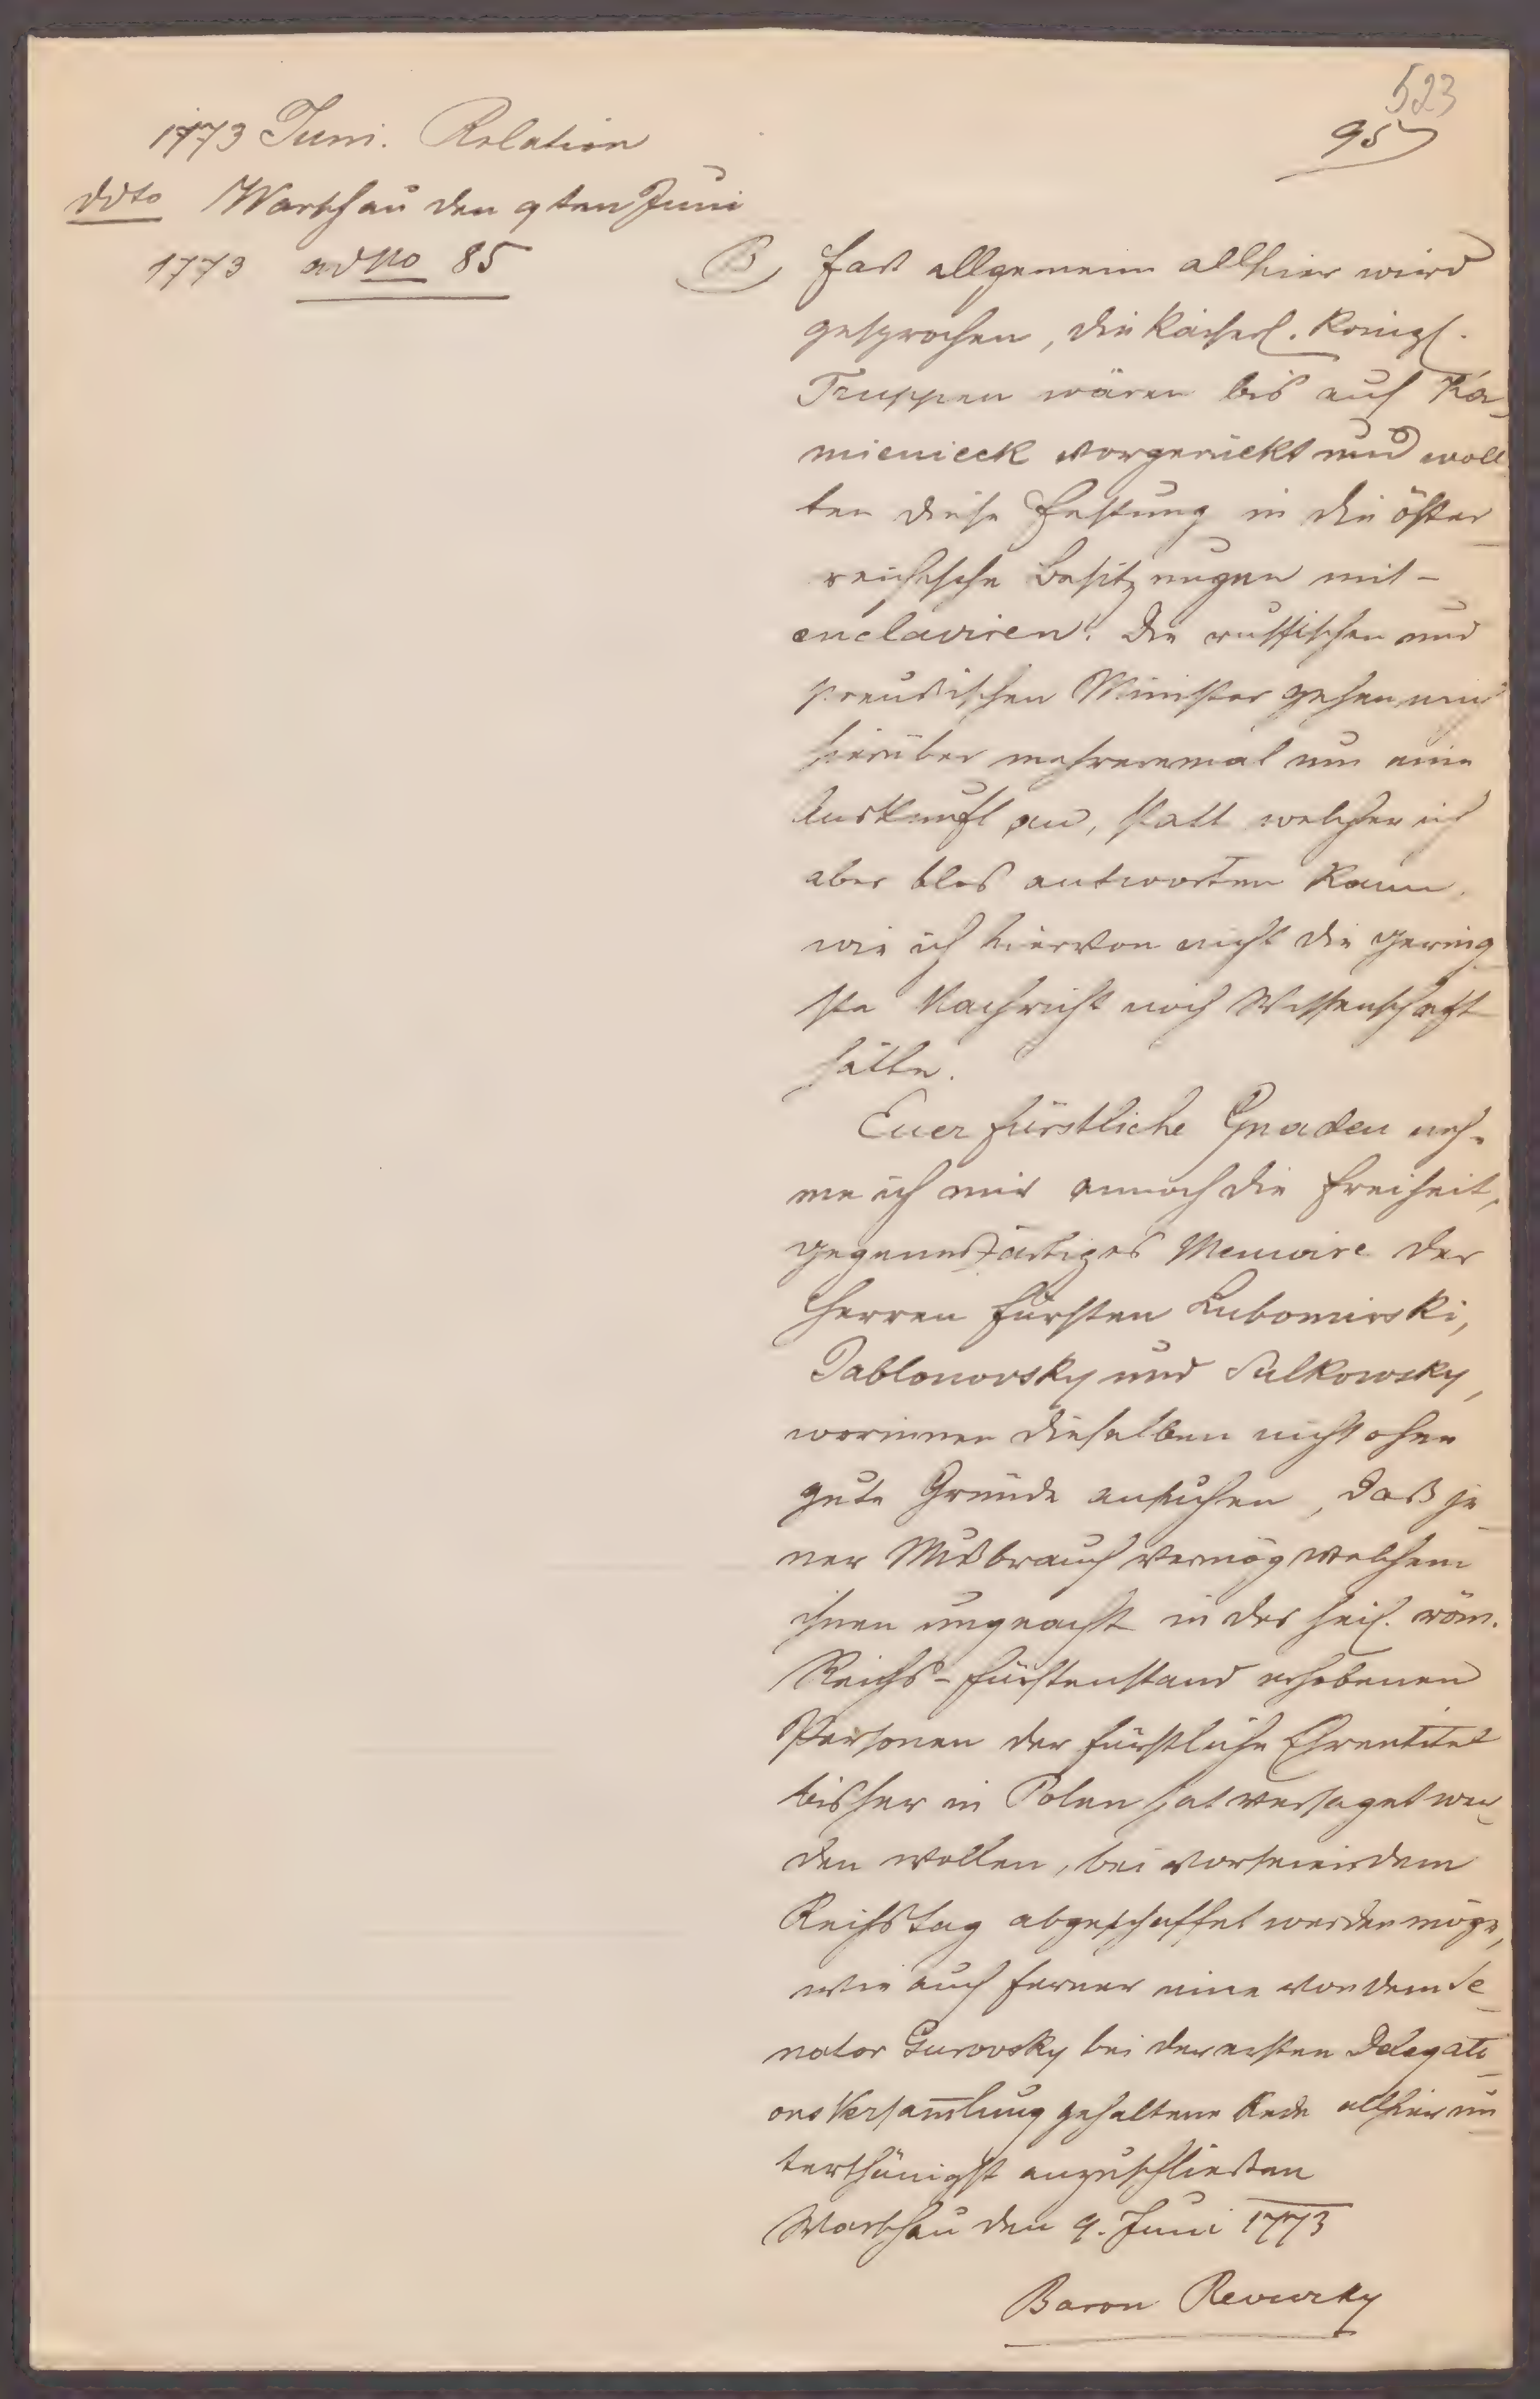 523
95
1773 Juni. Relation
ddto Warschau den 9ten Juni
1773 ad No 85
B, Fast allgemein allhier wird
gesprochen, die Kaiserl. Königl.
Truppen wären bis auf Ka-
mienieck vorgerückt und woll
ten diese Festung in die öster
reichische Besitzungen mit-
enclaviren. Die russischen und
preußischen Minister gehen mich
hierüber mehreremal um eine
Auskunft an, statt welcher ich
aber blos antworten kann,
wie ich hiervon nicht die gering
ste Nachricht noch Wissenschaft
hätte.
Euer fürstliche Gnaden neh-
me ich mir annoch die Freiheit,
gegenwärtiges Memoire der
Herren Fürsten Lubomirski,
Jablonovsky und Sulkowsky,
worinnen dieselben nicht ohne
gute Gründe ansuchen, daß je
ner Mißbrauch vermög welchem
ihnen ungeacht in des heil. röm.
Reichs-Fürstenstand erhobenen
Personen der fürstliche Ehrentitel
bisher in Polen hat versaget wer
den wollen, bei vorseiendem
Reichstag abgeschaffet werden möge,
wie auch ferner eine von dem Se
nator Gurovsky bei der ersten Delegati
ons Versam̅lung gehaltene Rede allhier un
terthänigst anzuschließen
Warschau den 9. Juni 1773
Baron Reviczky